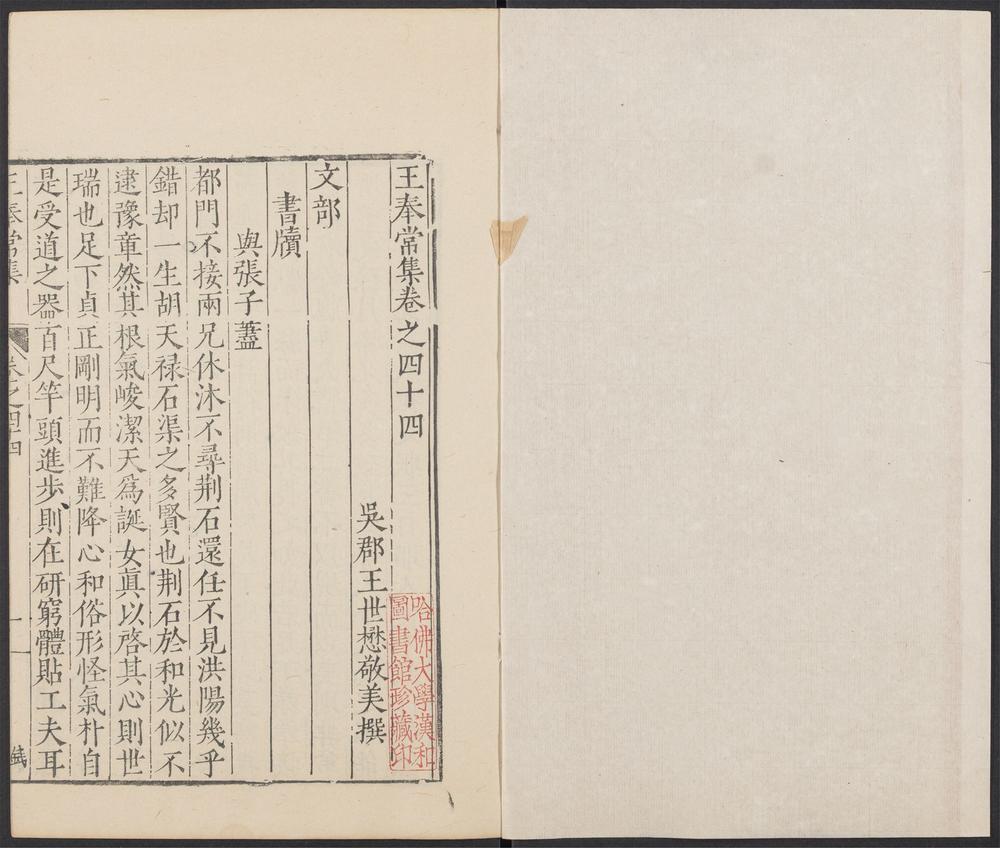 王奉常集卷之四十四
吳郡王世懋敬美撰
哈佛大學漢和
圖書館珍藏印
文部
書牘
與張子藎
都門不接兩兄休沐不尋荆石還任不見洪陽幾乎
錯却一生胡天禄石渠之多賢也荆石於和光似不
逮豫章然其根氣峻潔天爲誕女真以啓其心則世
瑞也足下貞正剛明而不難降心和俗形怪氣朴自
是受道之器百尺竿頭進步則在研窮體貼工夫耳
王奉常集
卷之四十四
一